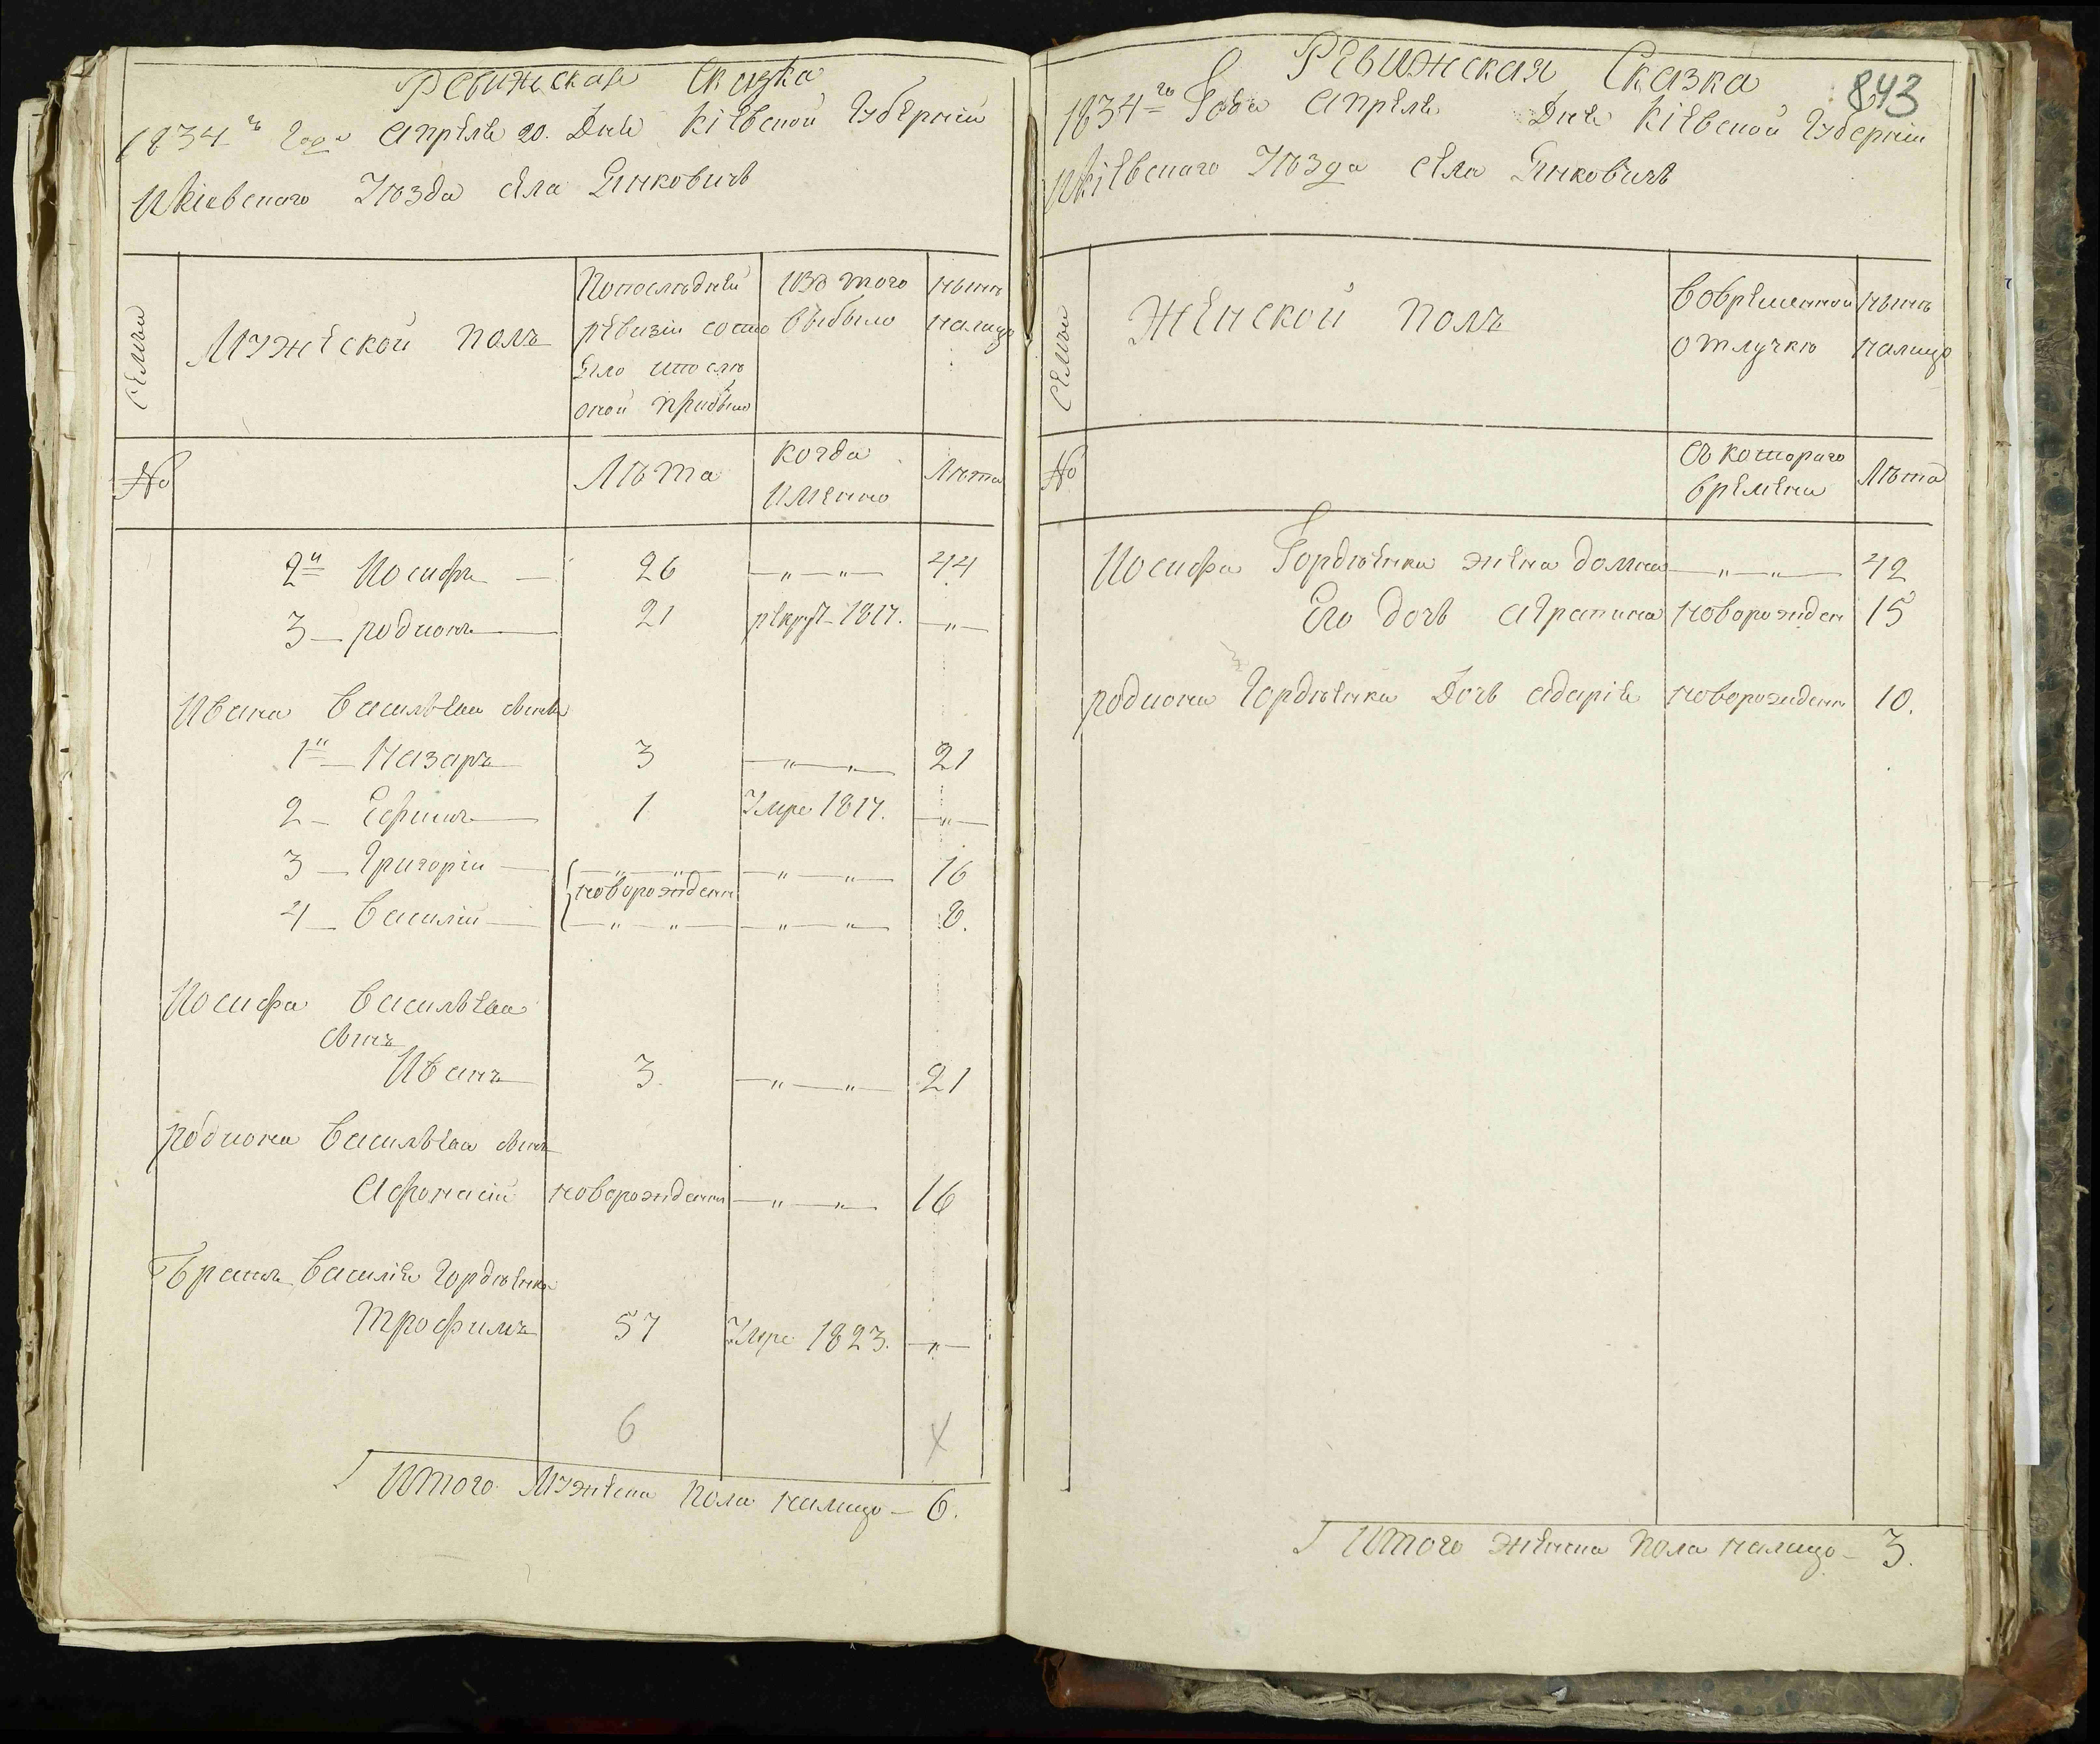 Ревижская Сказка
1834 го Года Апреля 20. Дня Кіевской Губерніи
И Кіевскаго Уѣзда села Янковичь
Семьи
Мужеской полъ
Попоследней
ревизіи состо
яло ипослѣ
оной прибыло
Изъ того
выбыло
нынѣ
налицо
№
Лѣта
когда
имянно
Лѣта
2й Иосифъ — 26 —„—„— 44
3 — родионъ — 21 рекрут. 1817. —„—
Ивана Васильева сынья
1й — Назаръ 3 —„—„— 21
2 — Ефимъ — 1 Умре 1817. —„—
3 — Григоріи — —„—„— —„—„— 16
новорожденн
4 — Василіи — —„—„— —„—„— 8.
Иосифа Васильева
сынъ
Иванъ 3. —„—„— 21
родиона Васильева сынъ
Афонасіи новорожденн —„—„— 16
Братъ Василія Гордѣенка
Трофимъ 57 Умре 1823. —„—
6
Итого Мужеска пола налицо — 6.
843
Ревижская Сказка
1834 го Года Апреля Дня Кіевской Губерніи
И Кіевскаго Уѣзда села Янковичь
Семьи
Женской полъ
Вовременной
отлучкѣ
нынѣ
налицо
№
Съ котораго
времени
Лѣта
Иосифа Гордѣенка жена домна —„—„— 42
Его дочь Аграпина новорожден 15
родиона Гордѣенка Дочь новорожденн 10.
Итого женска пола налицо — 3.